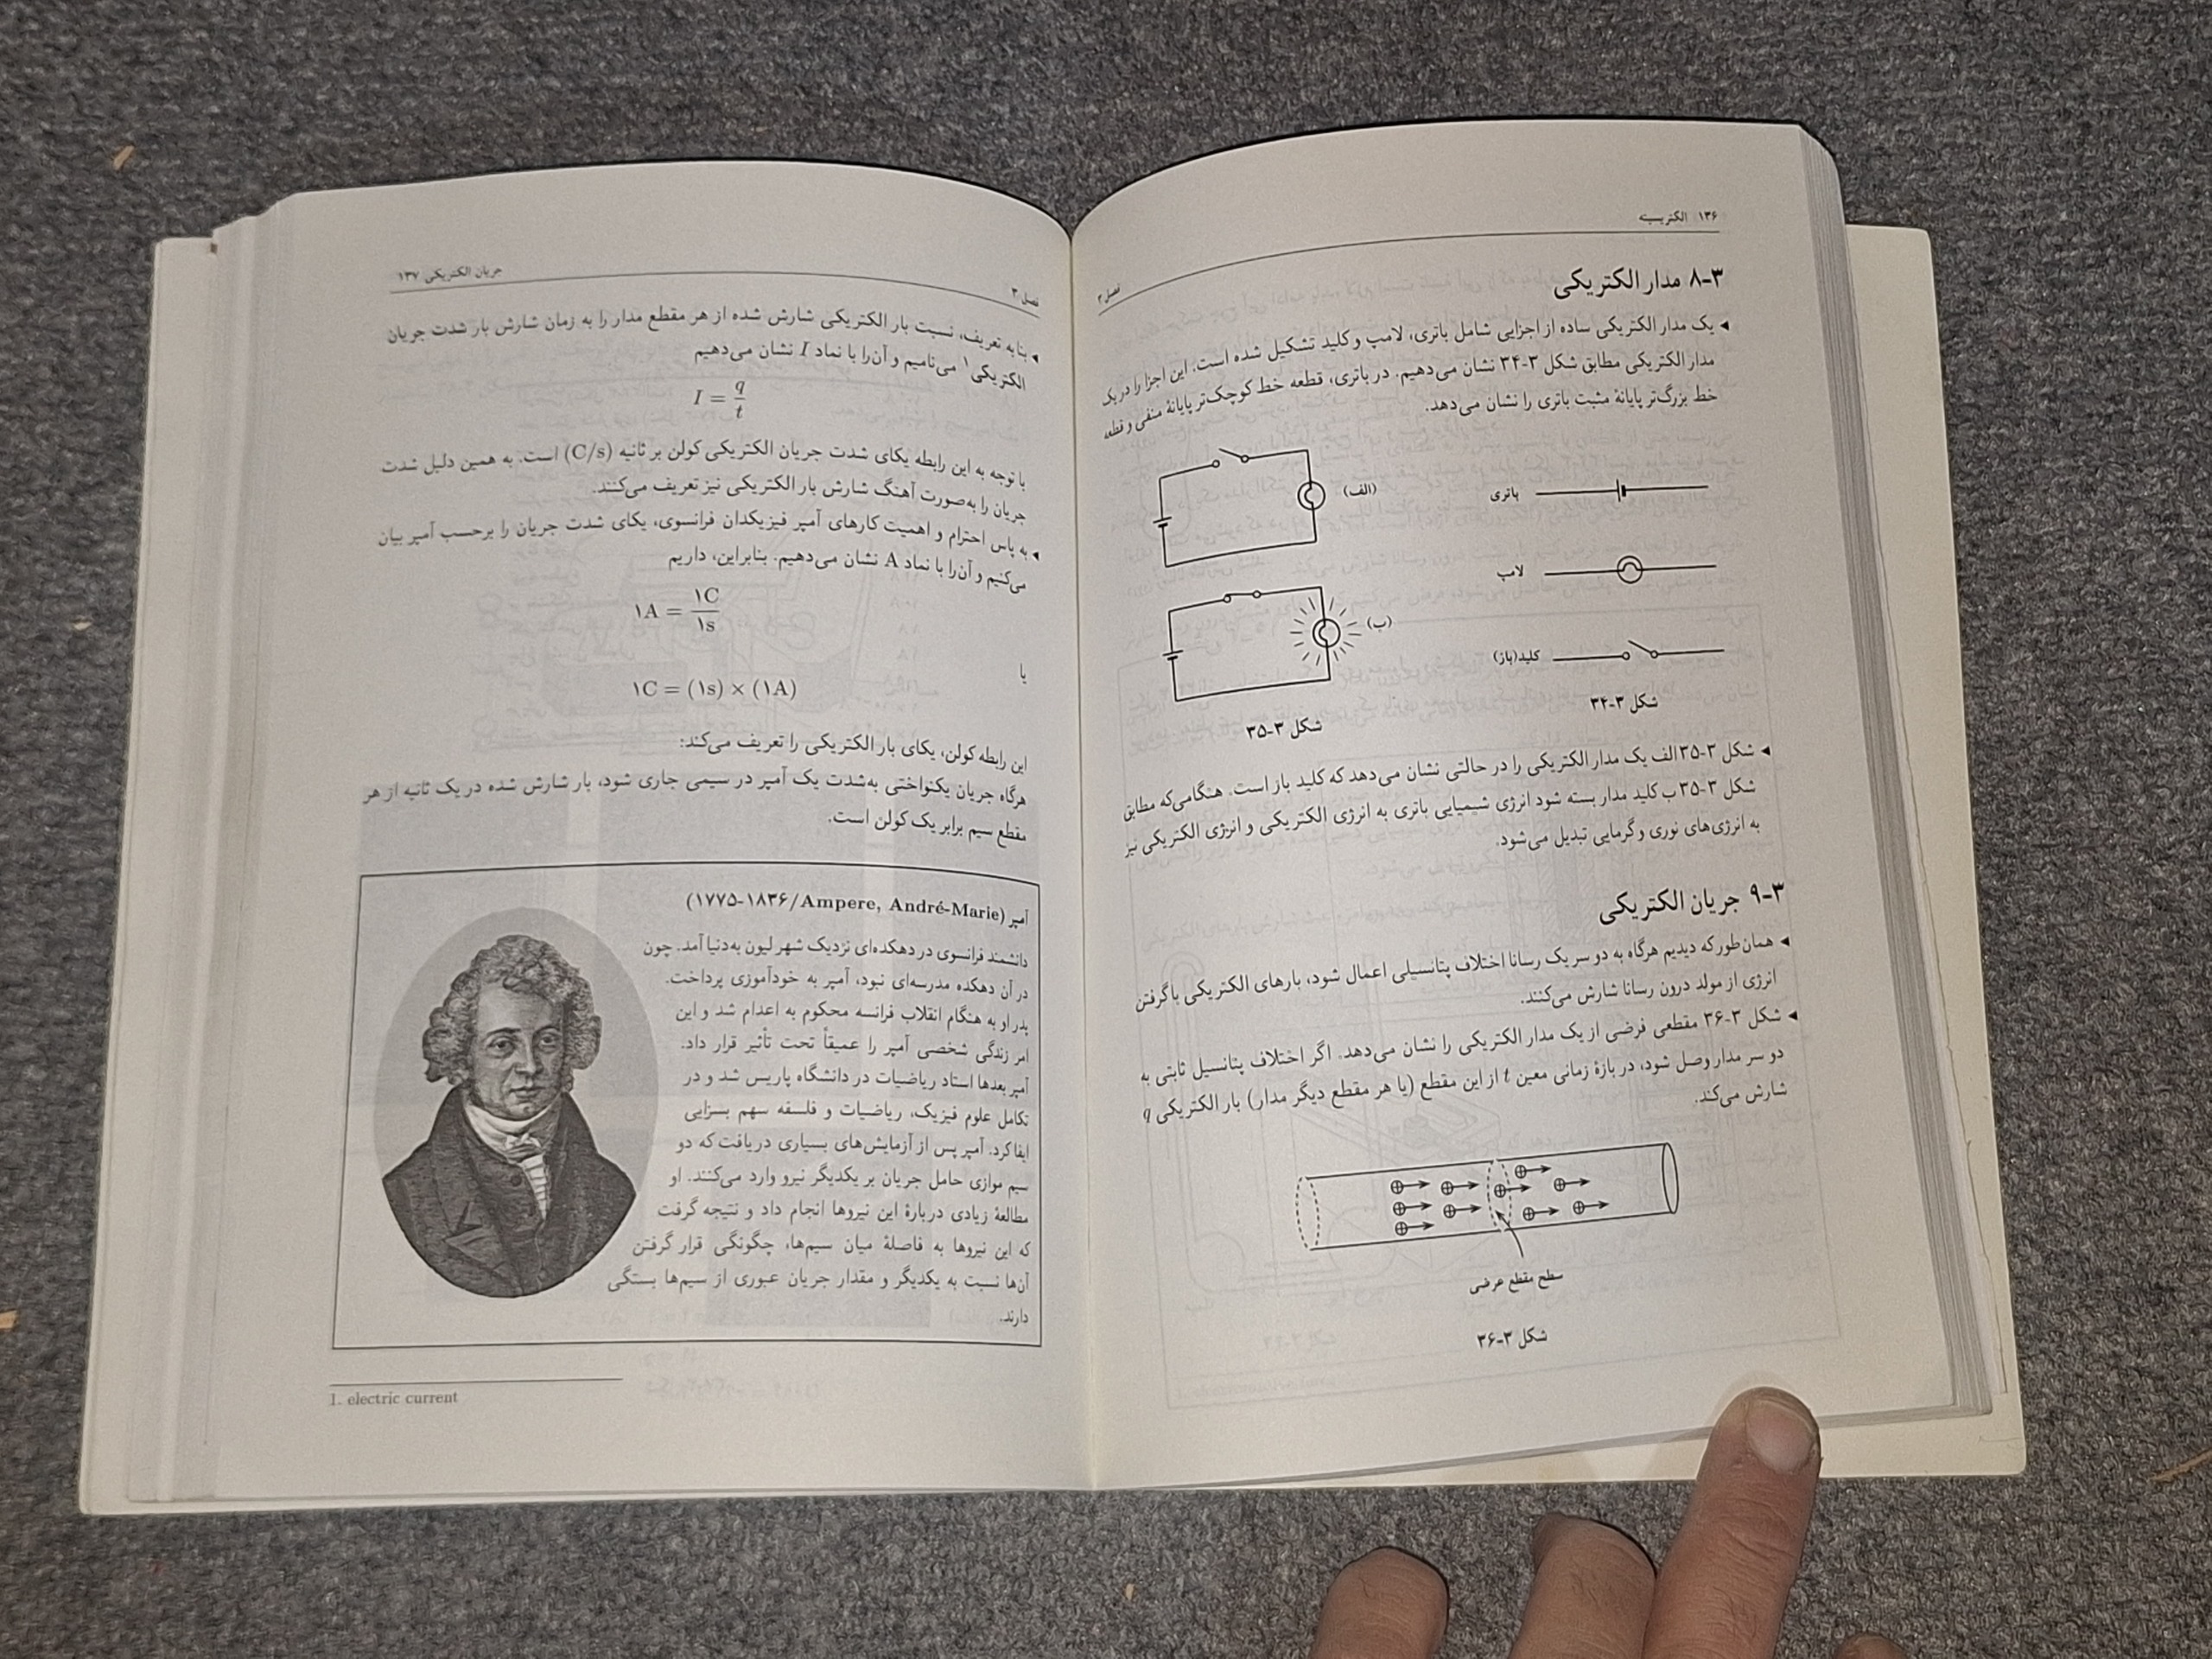 ۱۳۶ الکتریسیته
فصل ۳
۳-۸ مدار الکتریکی
◂ یک مدار الکتریکی ساده از اجزایی شامل باتری، لامپ و کلید تشکیل شده است. این اجزا را در یک
مدار الکتریکی مطابق شکل ۳-۳۴ نشان می‌دهیم. در باتری، قطعه خط کوچک‌تر پایانهٔ منفی و قطعه
خط بزرگ‌تر پایانهٔ مثبت باتری را نشان می‌دهد.
باتری
لامپ
کلید(باز)
شکل ۳-۳۴
(الف)
(ب)
شکل ۳-۳۵
◂ شکل ۳-۳۵ الف یک مدار الکتریکی را در حالتی نشان می‌دهد که کلید باز است. هنگامی‌که مطابق
شکل ۳-۳۵ ب کلید مدار بسته شود انرژی شیمیایی باتری به انرژی الکتریکی و انرژی الکتریکی نیز
به انرژی‌های نوری و گرمایی تبدیل می‌شود.
۳-۹ جریان الکتریکی
◂ همان‌طور که دیدیم هرگاه به دو سر یک رسانا اختلاف پتانسیلی اعمال شود، بارهای الکتریکی با گرفتن
انرژی از مولد درون رسانا شارش می‌کنند.
◂ شکل ۳-۳۶ مقطعی فرضی از یک مدار الکتریکی را نشان می‌دهد. اگر اختلاف پتانسیل ثابتی به
دو سر مدار وصل شود، در بازهٔ زمانی معین t از این مقطع (یا هر مقطع دیگر مدار) بار الکتریکی q
شارش می‌کند.
سطح مقطع عرضی
شکل ۳-۳۶
فصل ۳
جریان الکتریکی ۱۳۷
◂ بنا به تعریف، نسبت بار الکتریکی شارش شده از هر مقطع مدار را به زمان شارش بار شدت جریان
الکتریکی۱ می‌نامیم و آن‌را با نماد I نشان می‌دهیم
I = q/t
با توجه به این رابطه یکای شدت جریان الکتریکی کولن بر ثانیه (C/s) است. به همین دلیل شدت
جریان را به‌صورت آهنگ شارش بار الکتریکی نیز تعریف می‌کنند.
◂ به پاس احترام و اهمیت کارهای آمپر فیزیکدان فرانسوی، یکای شدت جریان را برحسب آمپر بیان
می‌کنیم و آن‌را با نماد A نشان می‌دهیم. بنابراین، داریم
۱A = ۱C/۱s
یا
۱C = (۱s) × (۱A)
این رابطه کولن، یکای بار الکتریکی را تعریف می‌کند:
هرگاه جریان یکنواختی به‌شدت یک آمپر در سیمی جاری شود، بار شارش شده در یک ثانیه از هر
مقطع سیم برابر یک کولن است.
آمپر (Ampere, André-Marie/۱۷۷۵-۱۸۳۶)
دانشمند فرانسوی در دهکده‌ای نزدیک شهر لیون به‌دنیا آمد. چون
در آن دهکده مدرسه‌ای نبود، آمپر به خودآموزی پرداخت.
پدر او به هنگام انقلاب فرانسه محکوم به اعدام شد و این
امر زندگی شخصی آمپر را عمیقاً تحت تأثیر قرار داد.
آمپر بعدها استاد ریاضیات در دانشگاه پاریس شد و در
تکامل علوم فیزیک، ریاضیات و فلسفه سهم بسزایی
ایفا کرد. آمپر پس از آزمایش‌های بسیاری دریافت که دو
سیم موازی حامل جریان بر یکدیگر نیرو وارد می‌کنند. او
مطالعهٔ زیادی دربارهٔ این نیروها انجام داد و نتیجه گرفت
که این نیروها به فاصلهٔ میان سیم‌ها، چگونگی قرار گرفتن
آن‌ها نسبت به یکدیگر و مقدار جریان عبوری از سیم‌ها بستگی
دارند.
1. electric current